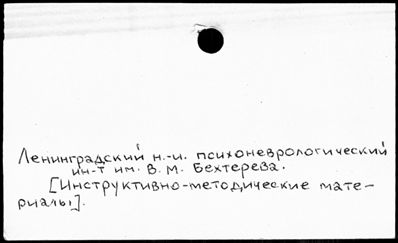 Ленинградский н.-и. психоневрологический
ин-т им. В. М. Бехтерева.
[Инструктивно-методические мате-
риалы].